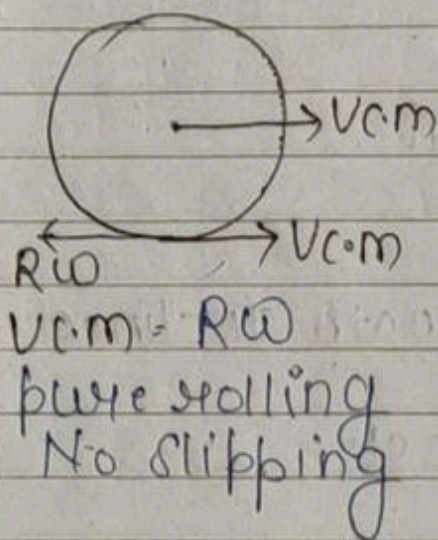 Vc.m
Vc.m
Rω
Vc.m = Rω
pure rolling
No slipping